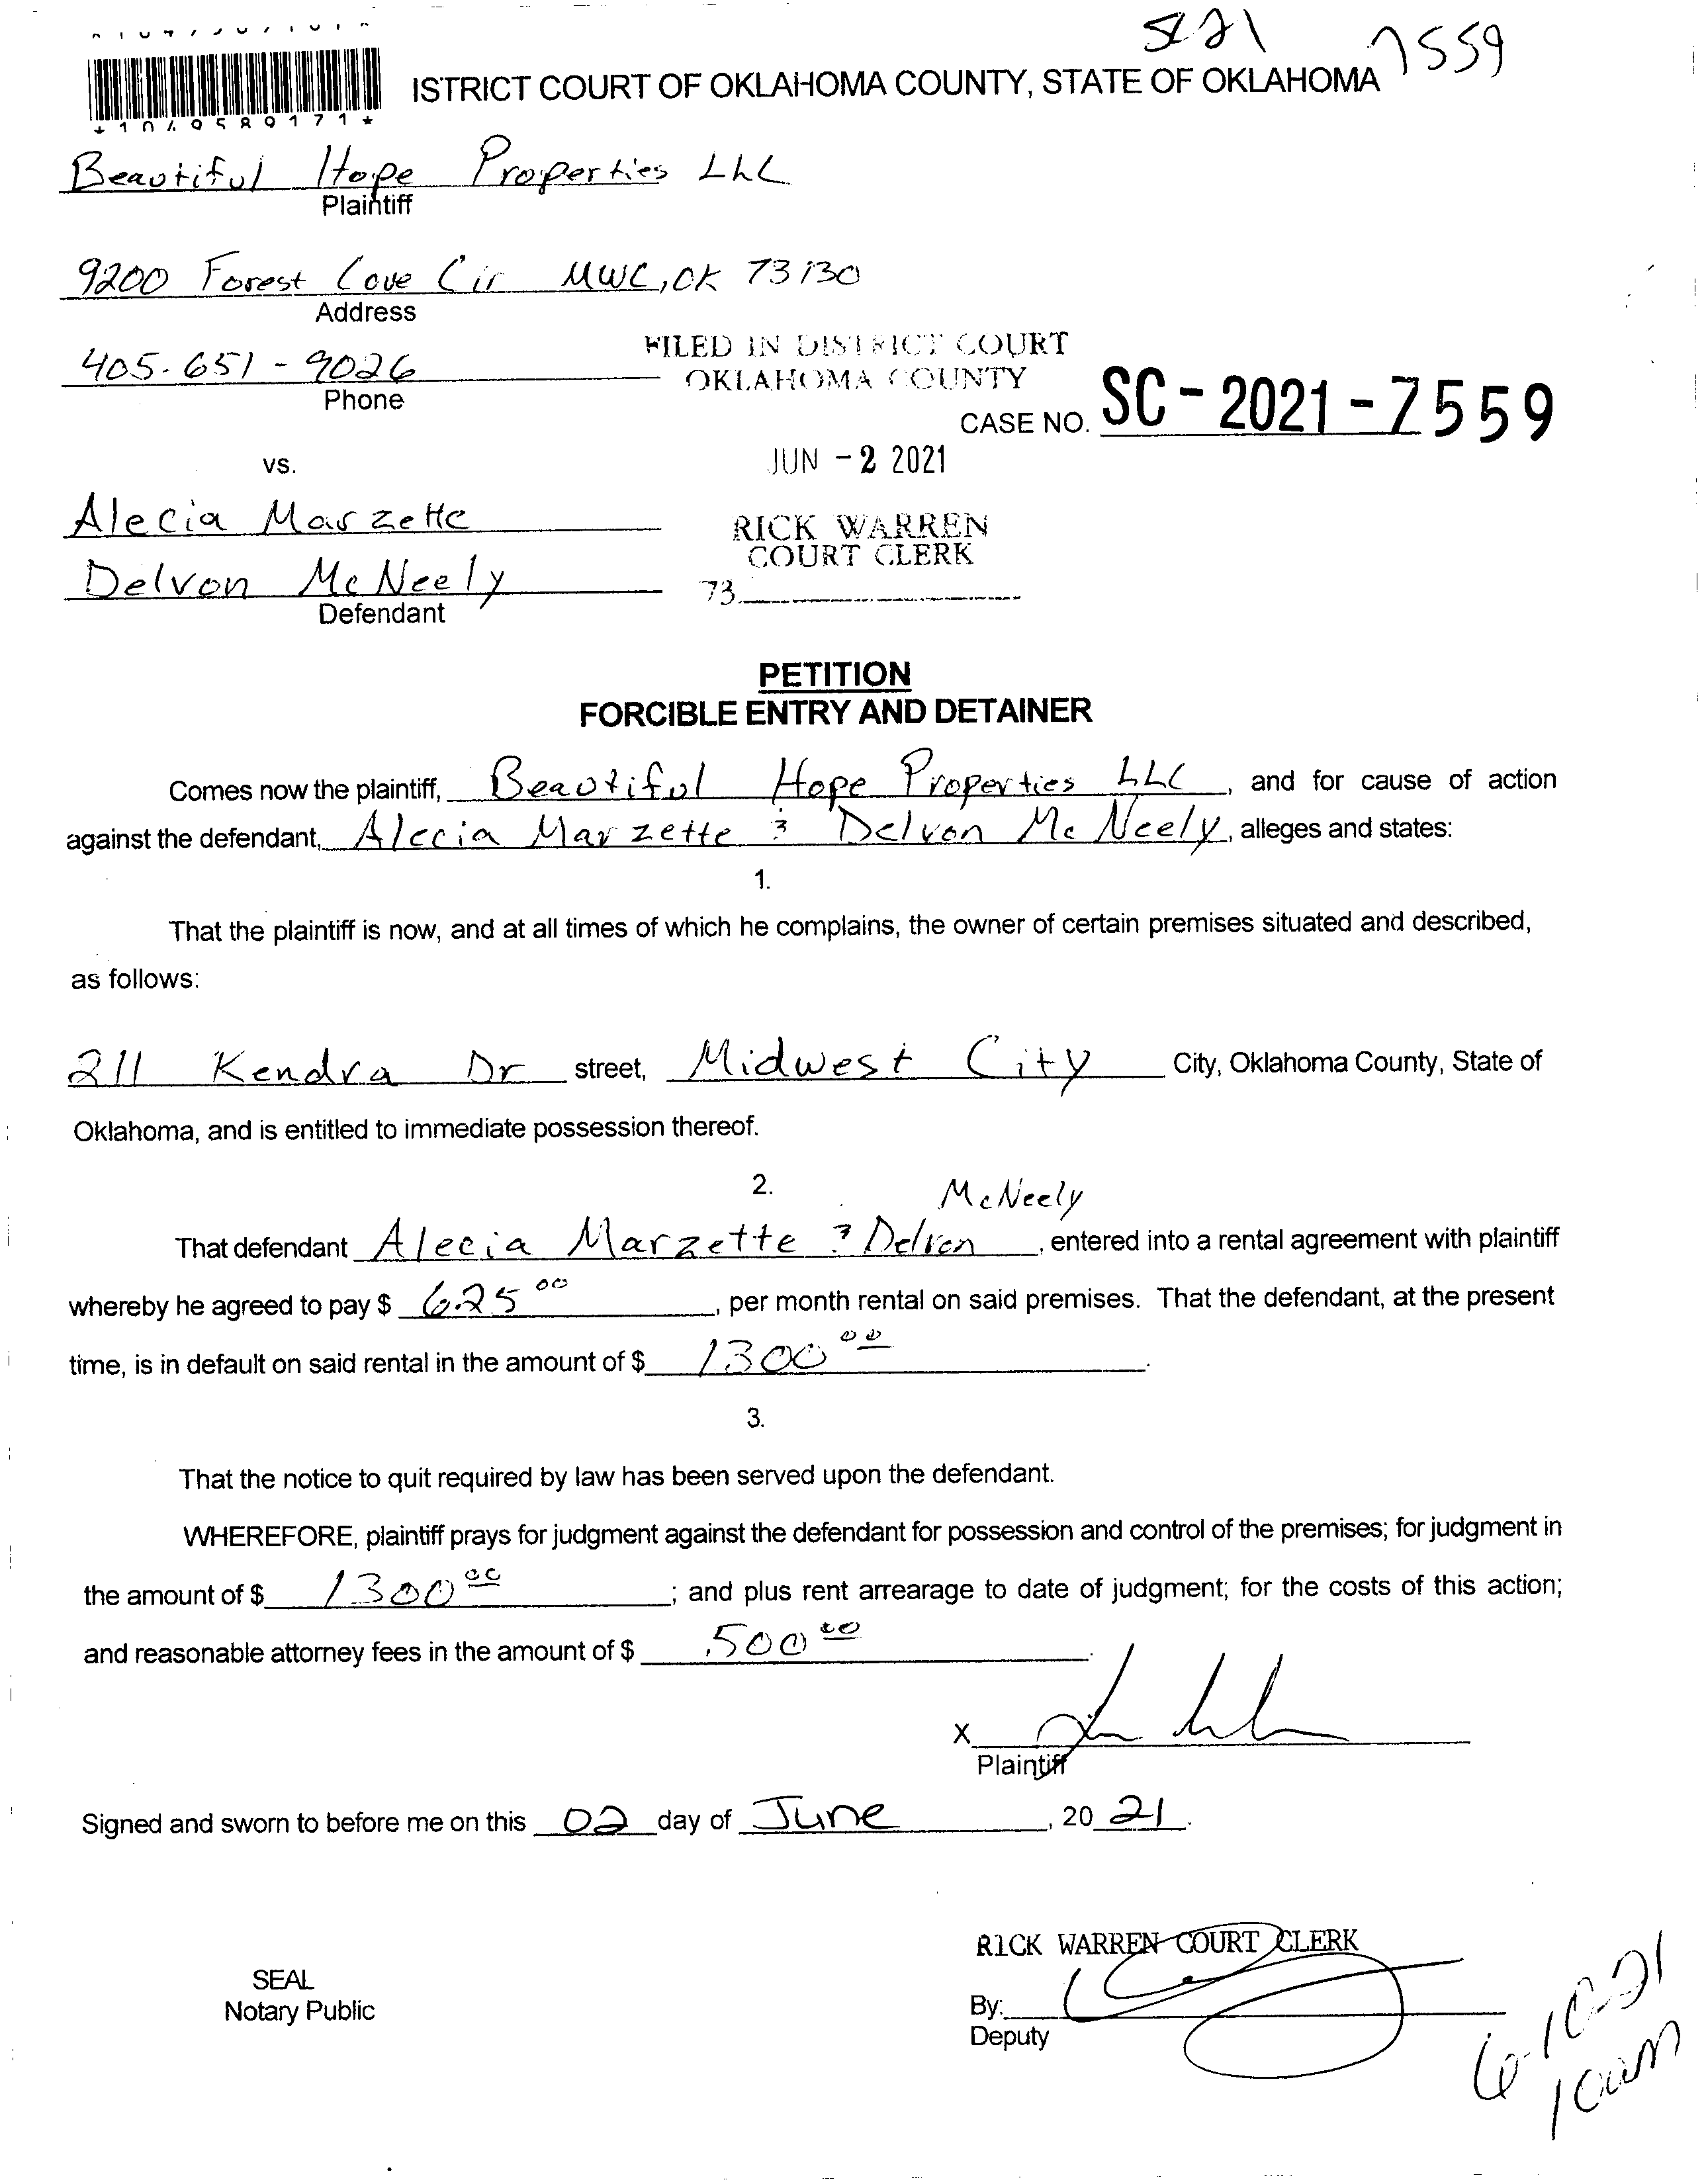 SC 21 7559
*1049589171*
ISTRICT COURT OF OKLAHOMA COUNTY, STATE OF OKLAHOMA
Beautiful Hope Properties LLC
Plaintiff
9200 Forest Cove Cir MWC, OK 73130
Address
405-651-9026
Phone
FILED IN DISTRICT COURT
OKLAHOMA COUNTY
CASE NO. SC-2021-7559
JUN -2 2021
vs.
Alecia Marzette
RICK WARREN
COURT CLERK
Delvon McNeely
73
Defendant
PETITION
FORCIBLE ENTRY AND DETAINER
Comes now the plaintiff, Beautiful Hope Properties LLC, and for cause of action
against the defendant, Alecia Marzette & Delvon McNeely, alleges and states:
1.
That the plaintiff is now, and at all times of which he complains, the owner of certain premises situated and described,
as follows:
211 Kendra Dr street, Midwest City City, Oklahoma County, State of
Oklahoma, and is entitled to immediate possession thereof.
2.
McNeely
That defendant Alecia Marzette & Delvon, entered into a rental agreement with plaintiff
whereby he agreed to pay $ 625 00, per month rental on said premises. That the defendant, at the present
time, is in default on said rental in the amount of $ 1300 00.
3.
That the notice to quit required by law has been served upon the defendant.
WHEREFORE, plaintiff prays for judgment against the defendant for possession and control of the premises; for judgment in
the amount of $ 1300 00; and plus rent arrearage to date of judgment; for the costs of this action;
and reasonable attorney fees in the amount of $ 500 00.
X
Plaintiff
Signed and sworn to before me on this 02 day of June, 20 21.
RICK WARREN COURT CLERK
SEAL
Notary Public
By:
Deputy
6-10-21
10am